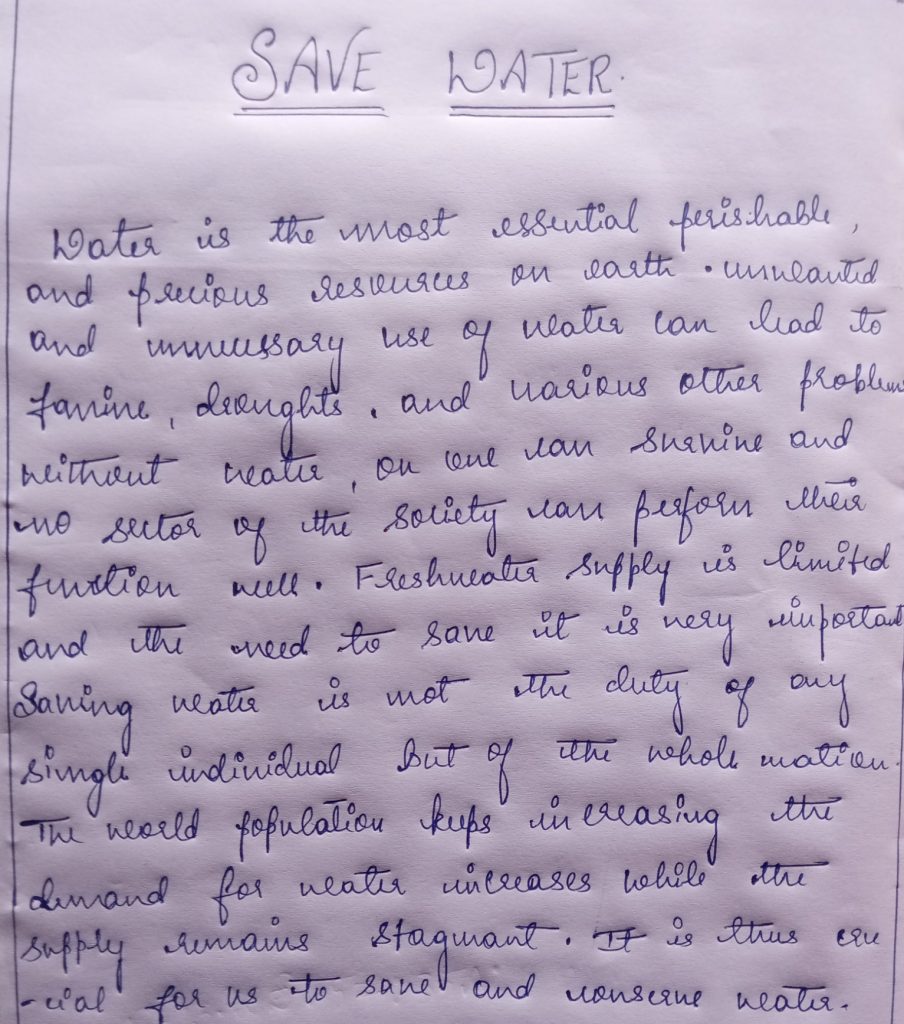 SAVE WATER.
Water is the most essential perishable,
and precious resources on earth. unwanted
and unnecessary use of water can lead to
famine, droughts. and various other problems
without water, on one can survive and
no sector of the society can perform their
function well. Freshwater supply is limited
and the need to save it is very important
Saving water is not the duty of any
single individual but of the whole nation.
The world population keeps increasing the
demand for water increases while the
supply remains stagnant. It is thus cru
-cial for us to save and conserve water.